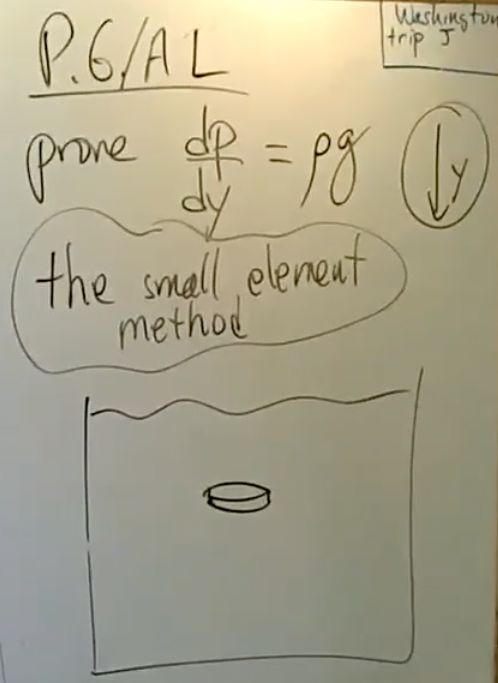 P.6/AL
Washington
trip J
prove dp/dy = ρg
y
the small element
method